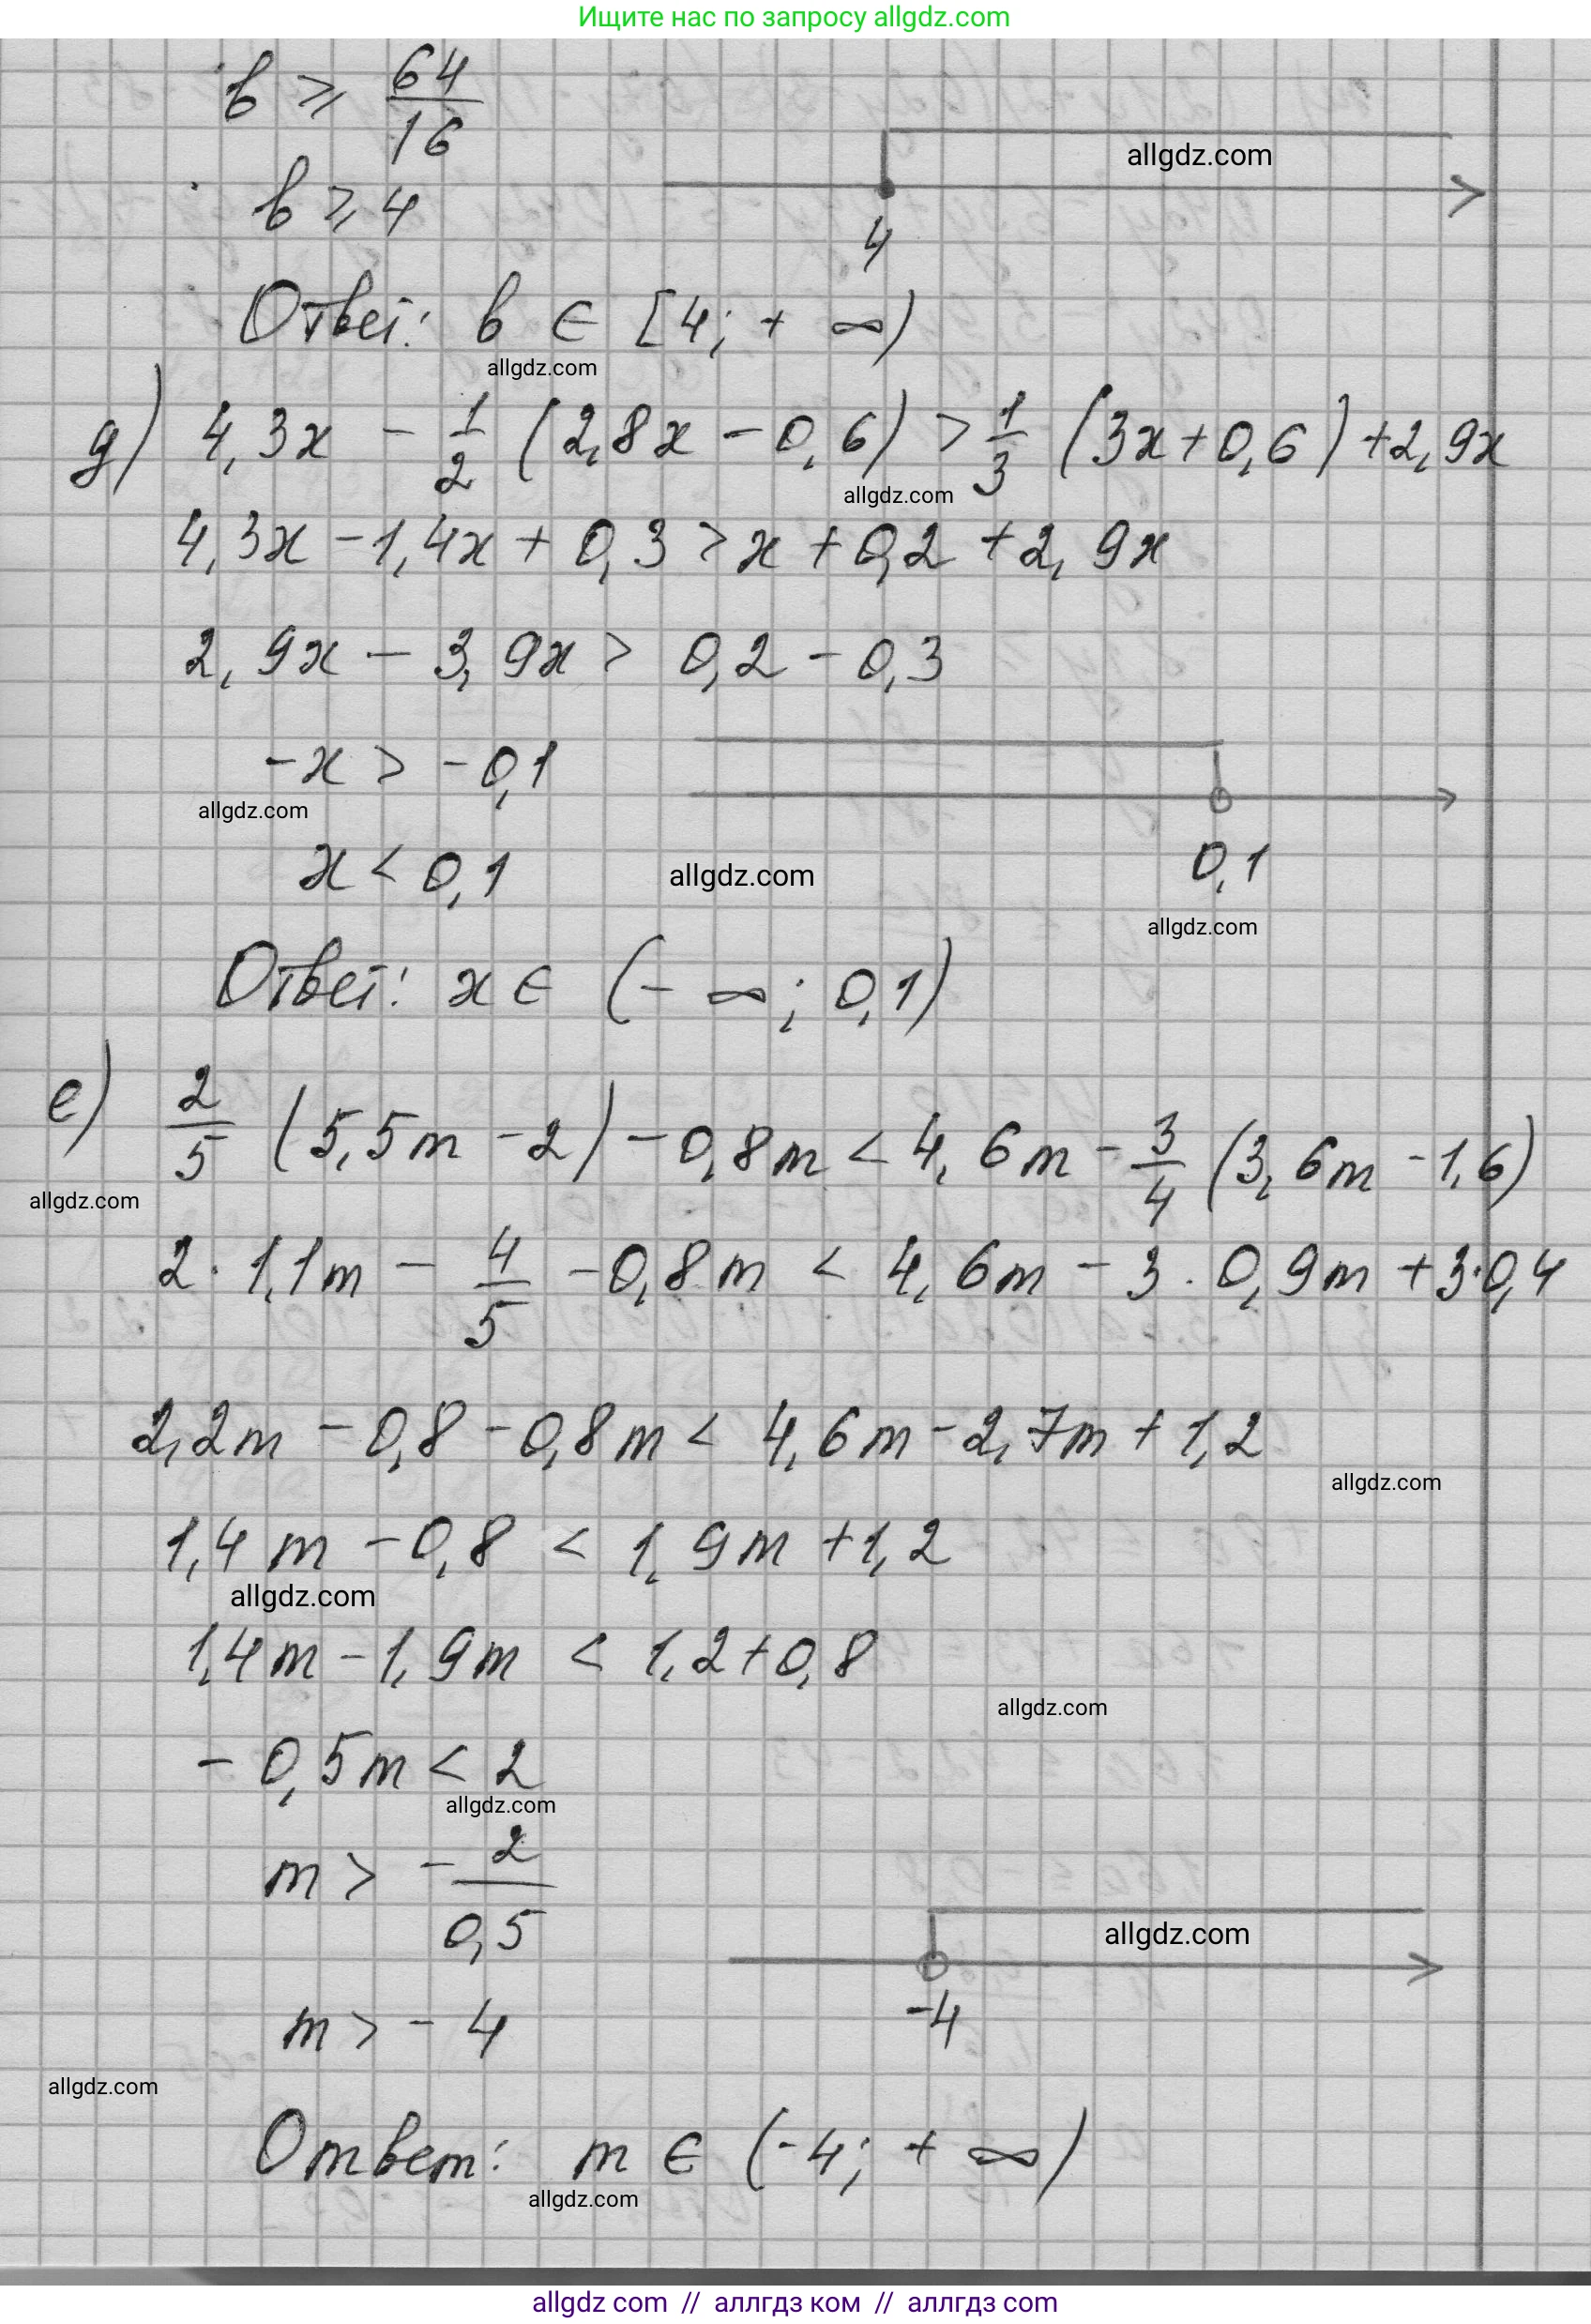 Ищите нас по запросу allgdz.com
b ⩾ 64/16
allgdz.com
b ⩾ 4
4
Ответ: b ∈ [4; + ∞)
allgdz.com
д) 4,3x − 1/2 (2,8x − 0,6) > 1/3 (3x + 0,6) + 2,9x
allgdz.com
4,3x − 1,4x + 0,3 > x + 0,2 + 2,9x
2,9x − 3,9x > 0,2 − 0,3
−x > −0,1
allgdz.com
x < 0,1
allgdz.com
0,1
allgdz.com
Ответ: x ∈ (− ∞; 0,1)
е) 2/5 (5,5m − 2) − 0,8m < 4,6m − 3/4 (3,6m − 1,6)
allgdz.com
2 · 1,1m − 4/5 − 0,8m < 4,6m − 3 · 0,9m + 3·0,4
2,2m − 0,8 − 0,8m < 4,6m − 2,7m + 1,2
allgdz.com
1,4m − 0,8 < 1,9m + 1,2
allgdz.com
1,4m − 1,9m < 1,2 + 0,8
allgdz.com
− 0,5m < 2
allgdz.com
m > − 2/0,5
allgdz.com
m > − 4
−4
allgdz.com
Ответ: m ∈ (−4; + ∞)
allgdz.com
allgdz com // аллгдз ком // аллгдз com